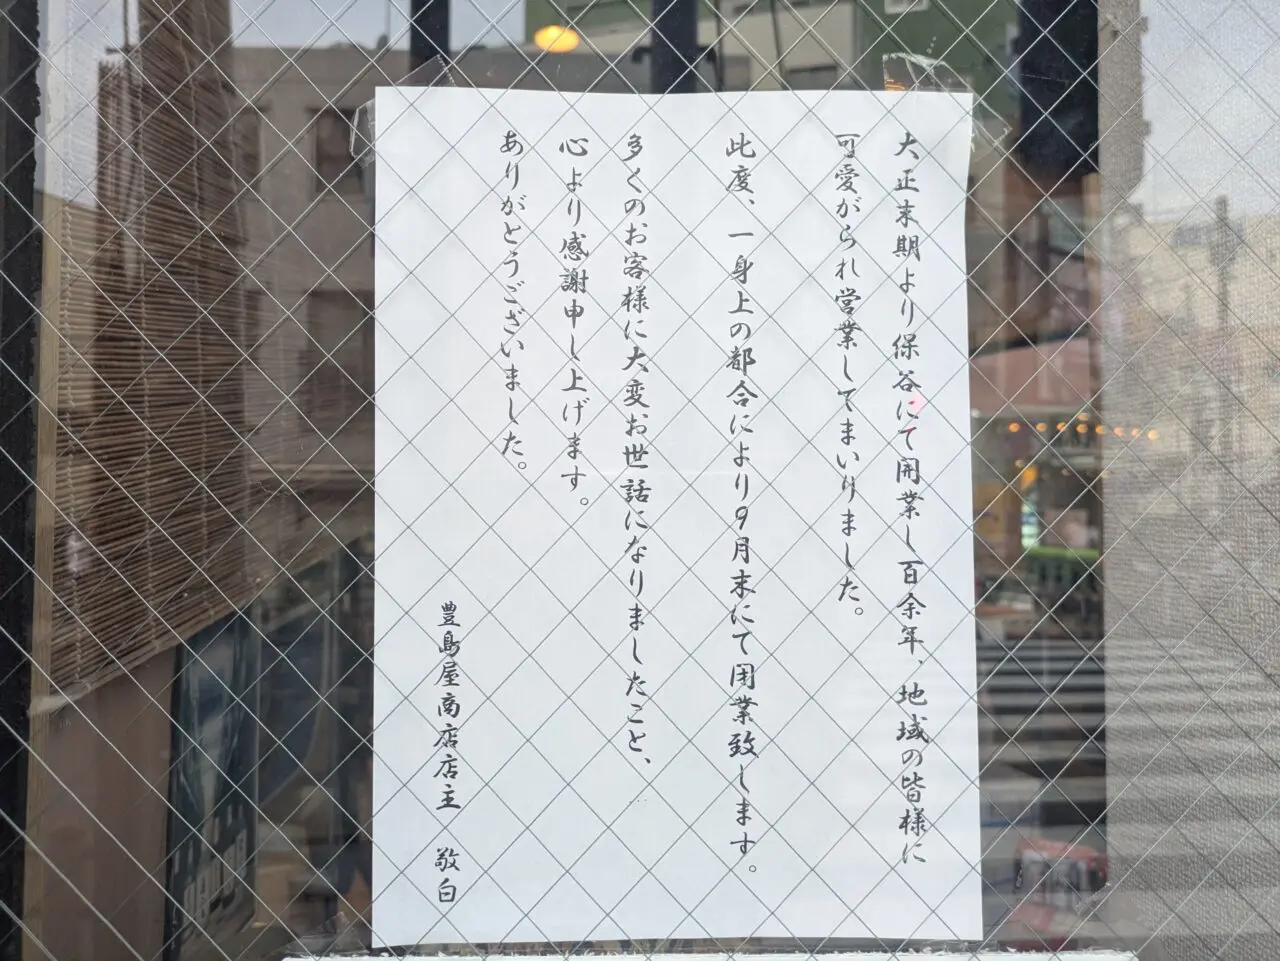 大正末期より保谷にて開業し百余年、地域の皆様に
可愛がられ営業してまいりました。
此度、一身上の都合により9月末にて閉業致します。
多くのお客様に大変お世話になりましたこと、
心より感謝申し上げます。
ありがとうございました。
豊島屋商店店主 敬白